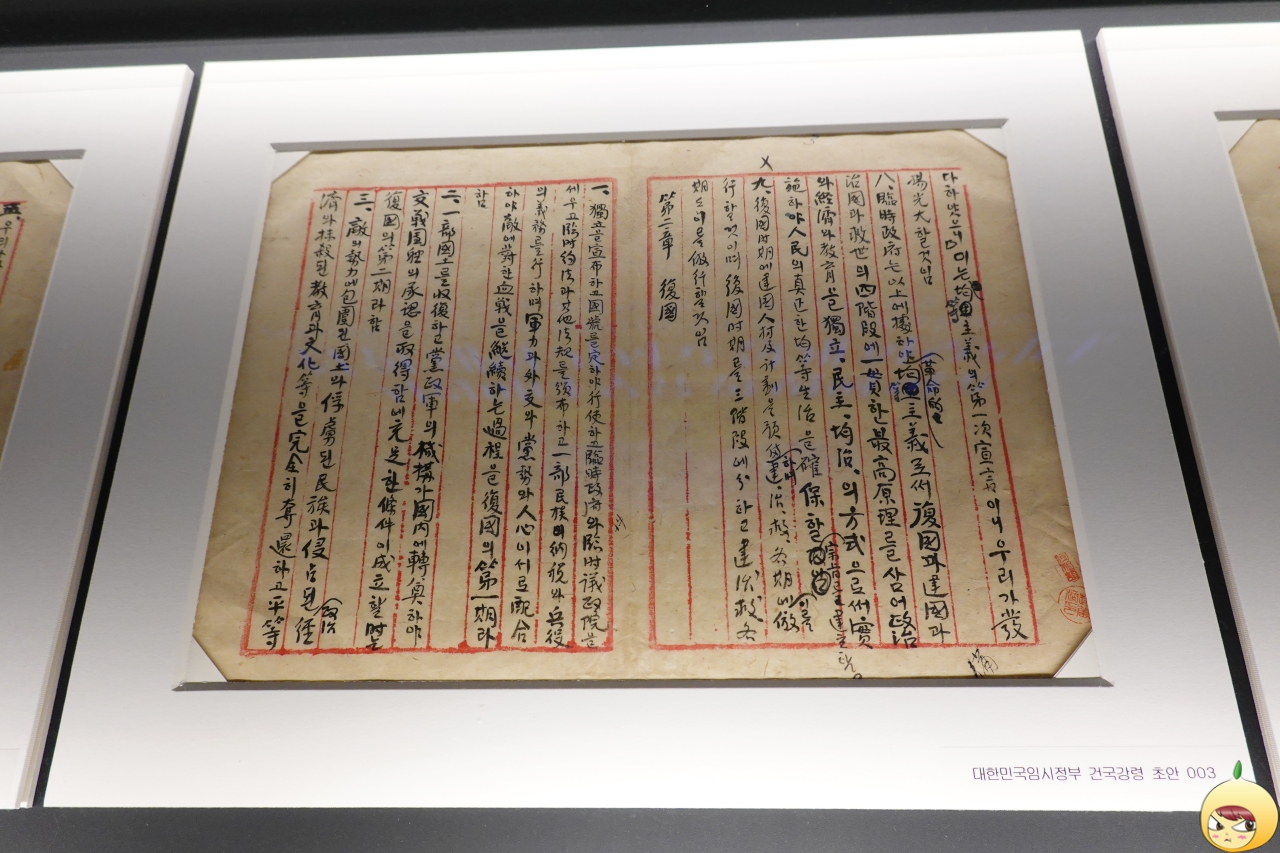 다하얏으니 이는 均等主義의 第一次宣言이니 우리가 發
陽光大할것임
八、臨時政府는 以上에 據하야 革命的 均等主義로써 復國과 建國과
治國과 救世의 四階段에 一貫한 最高原理를 삼어 政治
와 經濟와 敎育을 獨立、民主、均治、의 方式으로써 實
施하야 人民의 真正한 均等生活을 確保할
九、復國時期에 建國人材及計劃을 하며 建、治、救、各期에 이를 倣
行할것이며 復國時期를 三階段에 分하고 建 治 救 各
期도 이를 倣行할것임
第二章 復國
一、獨立을 宣布하고 國號를 定하야 行使하고 臨時政府와 臨時議政院을
세우고 臨時約法과 其他法規를 頒布하고 一部民族의 納稅와 兵役
의 義務를 行하며 軍力과 外交와 黨勢와 人心이 서로 配合
하야 敵에 對한 血戰을 繼續하는 過程을 復國의 第一期라
함
二、一部國土를 收復하고 黨政軍의 機構가 國內에 轉奠하야
交戰團體의 承認을 取得함에 充足한 條件이 成立할 때는
復國의 第二期라 함
三、敵의 勢力에 包圍된 國土와 俘虜된 民族과 侵占된 政治 經
濟와 抹殺된 敎育과 文化等을 完全히 奪還하고 平等
五、우리나
대한민국임시정부 건국강령 초안 003